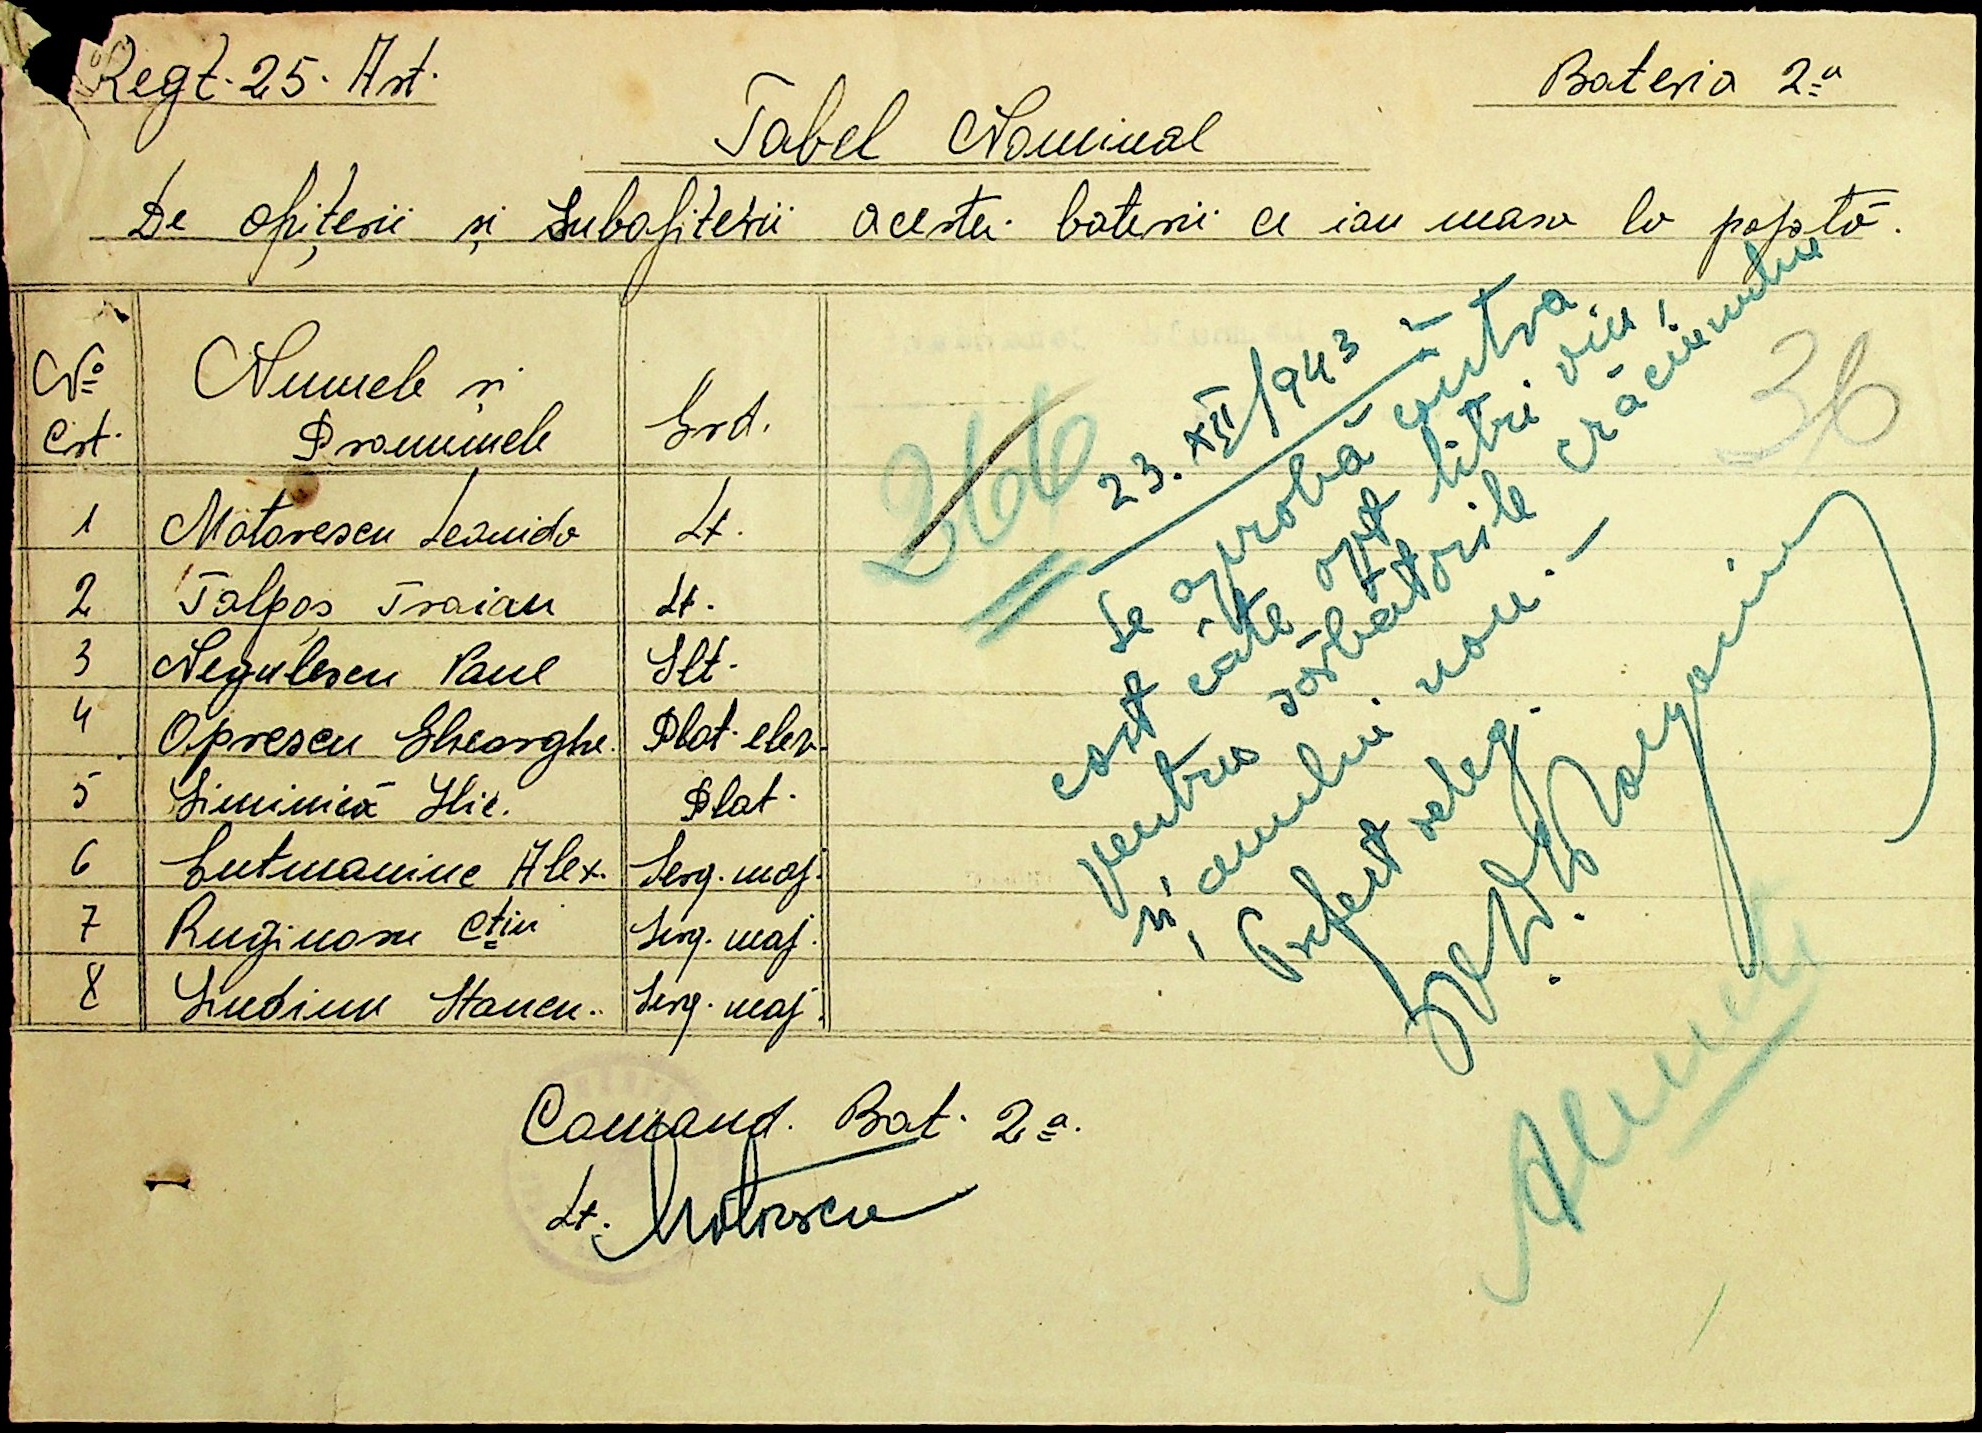 Regt. 25. Art.
Bateria 2ª
Tabel Nominal
De ofițerii și subofițerii acestei baterii ce iau masa la popotă.
Nº Crt. Numele și Pronumele Grd.
1 Motorescu Leonida Lt.
2 Talpoș Traian Lt.
3 Negulescu Paul Slt.
4 Oprescu Gheorghe. Plot. elev.
5 Siminică Ilie. Plot.
6 Gutmanine Alex. Serg. maj.
7 Ruginosu Ctin Serg. maj.
8 Stancu. Serg. maj.
366
36
23. XII/943
Se aprobă contra
cost câte opt litri vin,
pentru sărbătorile crăciunului
și anului nou. —
Prefect
Comand. Bat. 2ª.
Lt. Motorescu